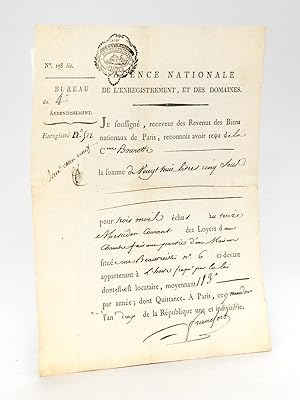 Nº. 198 bis.
AGENCE NATIONALE
BUREAU
DE L'ENREGISTREMENT, ET DES DOMAINES.
du 4e
ARRONDISSEMENT.
Enregistré
JE soussigné, receveur des Revenus des Biens
nationaux de Paris, reconnois avoir reçu de la
Cenne
la somme de Vingt huit livres cinq Sous
pour trois mois échus au
Messidor Courant des Loyers d'une
Chambre faisant partie d'une Maison
située rue Beautreillis nº. 6 ci-devant
appartenant à
dont est locataire, moyennant 113
par année; dont Quittance. A Paris, ce
l'an deux de la République une et indivisible.